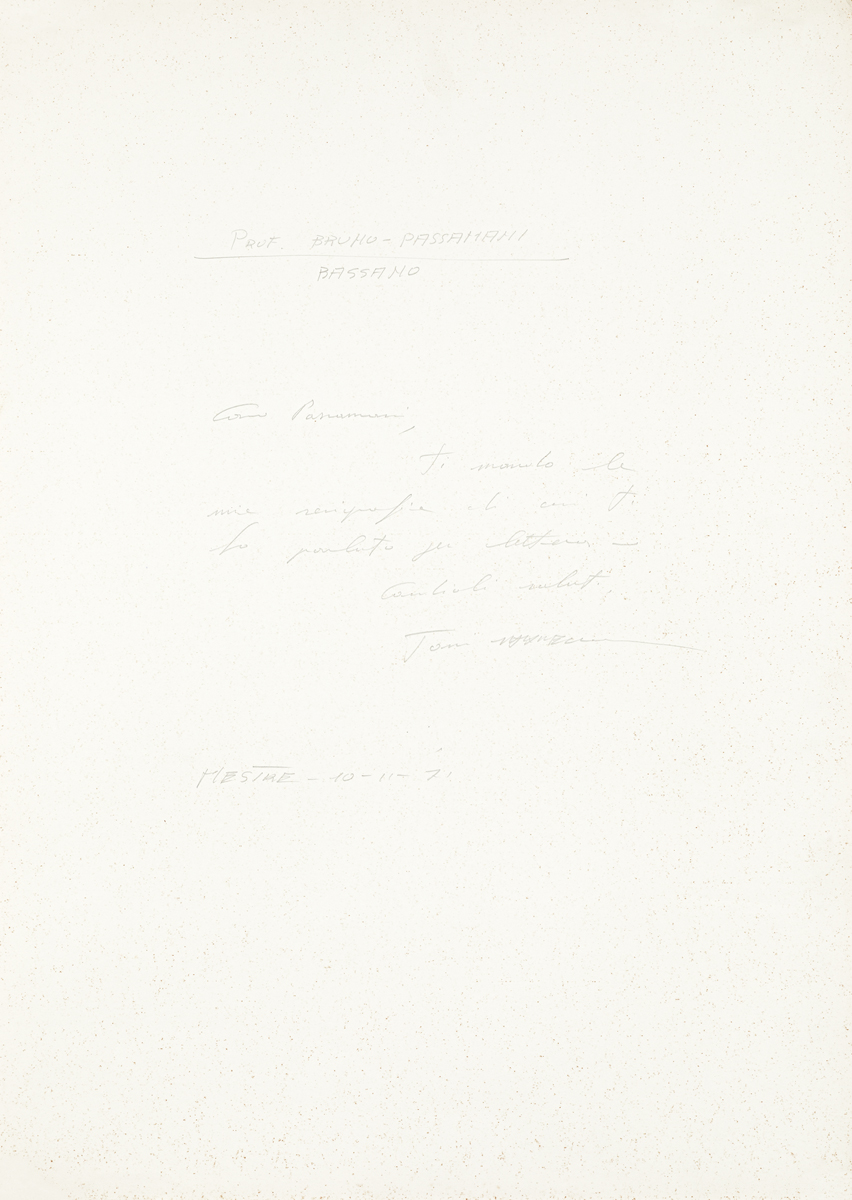 PROF. BRUNO - PASSAMANI
BASSANO
Caro Passamani,
Ti mando le
mie serigrafie di cui ti
ho parlato per lettera -
Cordiali saluti.
Toni
MESTRE - 10-11-71